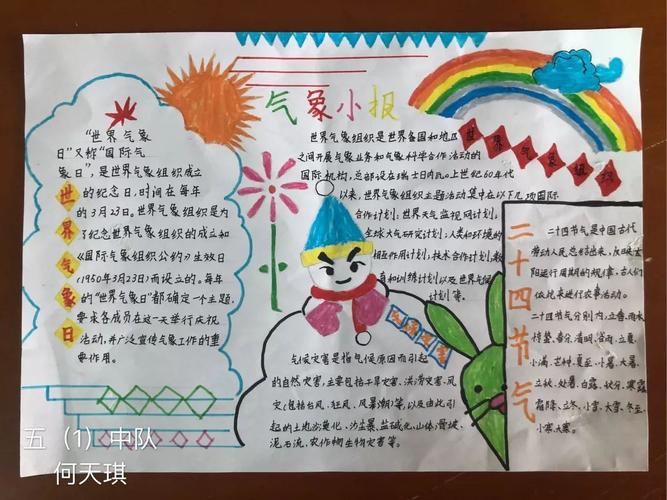 气象小报
"世界气象
日"又称"国际气
象日",是世界气象组织成立
的纪念日,时间在每年
的3月23日。世界气象组织是为
了纪念世界气象组织的成立和
《国际气象组织公约》生效日
(1950年3月23日)而设立的。每年
的"世界气象日"都确定一个主题,
要求各成员在这一天举行庆祝
活动,并广泛宣传气象工作的重
要作用。
世界气象日
世界气象组织是世界各国和地区
之间开展气象业务和气象科学合作活动的
国际机构,总部设在瑞士日内瓦。上世纪60年代
以来,世界气象组织主题活动集中在以下几项国际
合作计划,世界天气监视网计划,
全球大气研究计划,人类和环境的
相互作用计划,技术合作计划,教
育和训练计划以及世界气候
计划等。
世界气象组织
气候灾害
气候灾害是指气候原因而引起
的自然灾害,主要包括干旱灾害、洪涝灾害、风
灾(包括台风、狂风、风暴潮)等,以及由此引
起的土地沙漠化、沙尘暴、盐碱化、山体滑坡、
泥石流、农作物生物灾害等。
二十四节气
二十四节气是中国古代
劳动人民总结出来,反映太
阳运行周期的规律,古人们
依此来进行农事活动。
二十四节气分别为,立春、雨水
惊蛰、春分、清明、谷雨、立夏、
小满、芒种、夏至、小暑、大暑、
立秋、处暑、白露、秋分、寒露
霜降、立冬、小雪、大雪、冬至、
小寒大寒。
五 (1)中队
何天琪